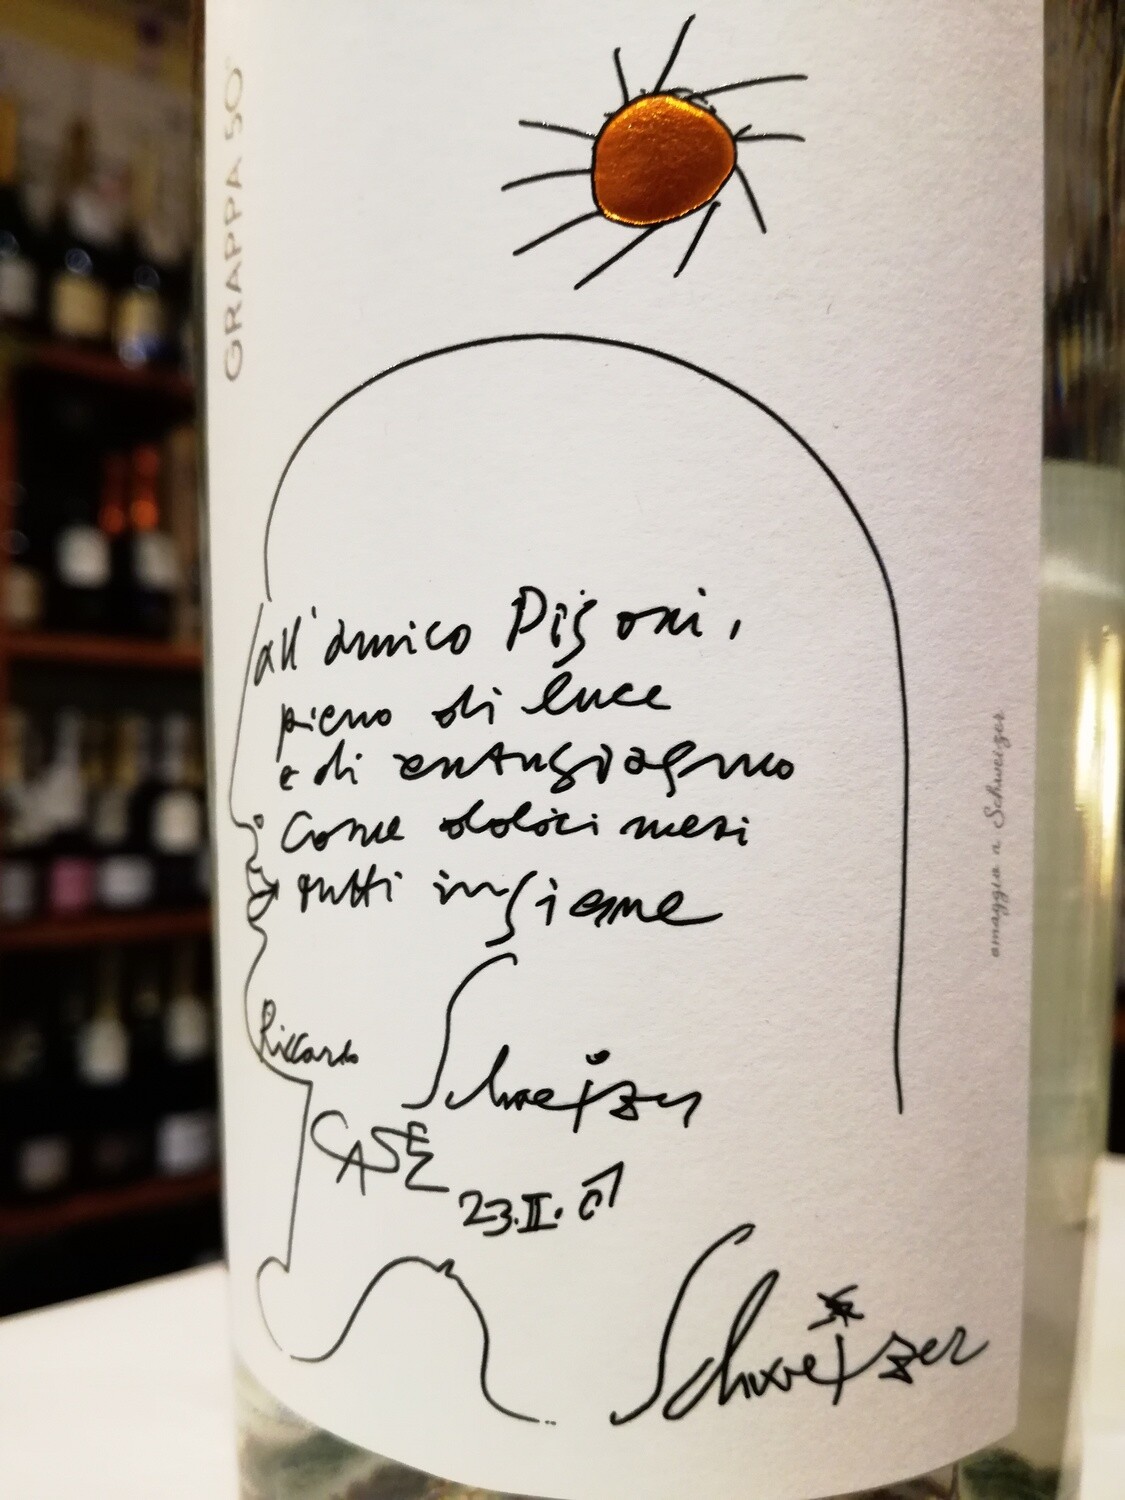 GRAPPA 50°
all'amico Pisoni,
pieno di luce
e di entusiasmo
come dodici mesi
tutti insieme
Riccardo Schweizer
CASEZ
23.II.01
Schweizer
omaggio a Schweizer